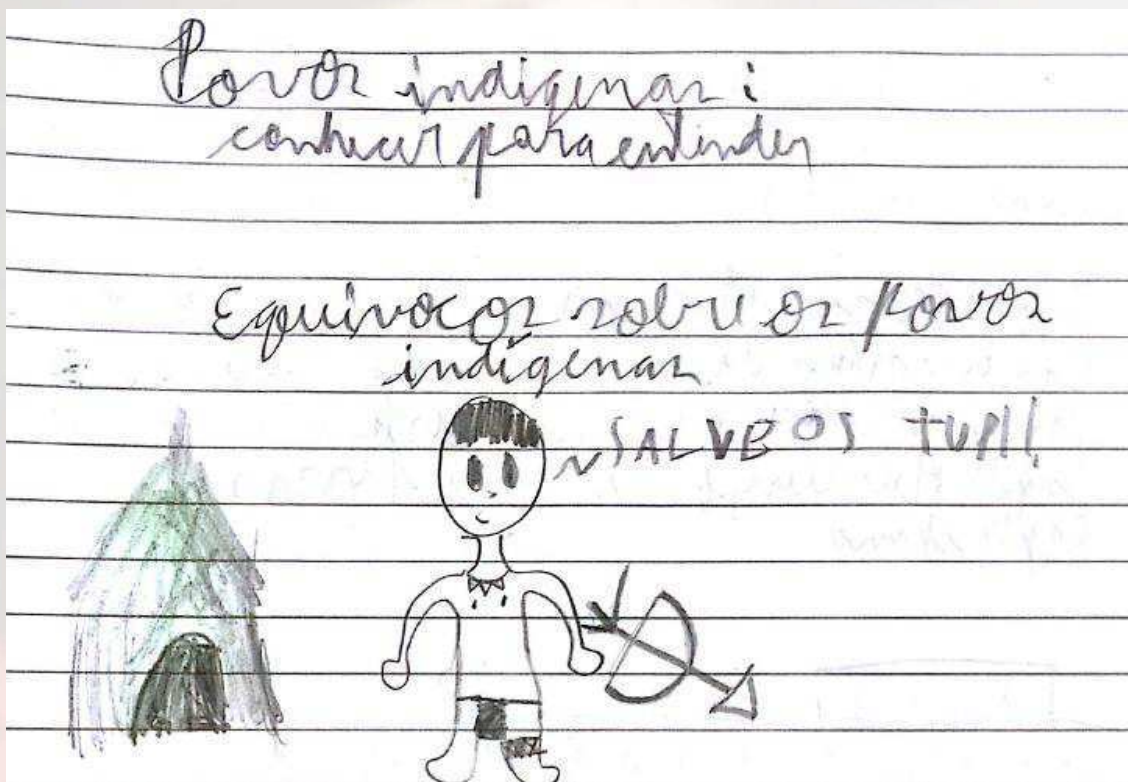 Povos indigenas:
conhecer para entender
Equivocos sobre os povos
indígenas
SALVE OS TUPI!